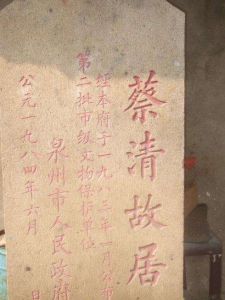 蔡清故居
经本府于一九八三年一月公布
第二批市级文物保护单位
泉州市人民政府
公元一九八四年六月 日